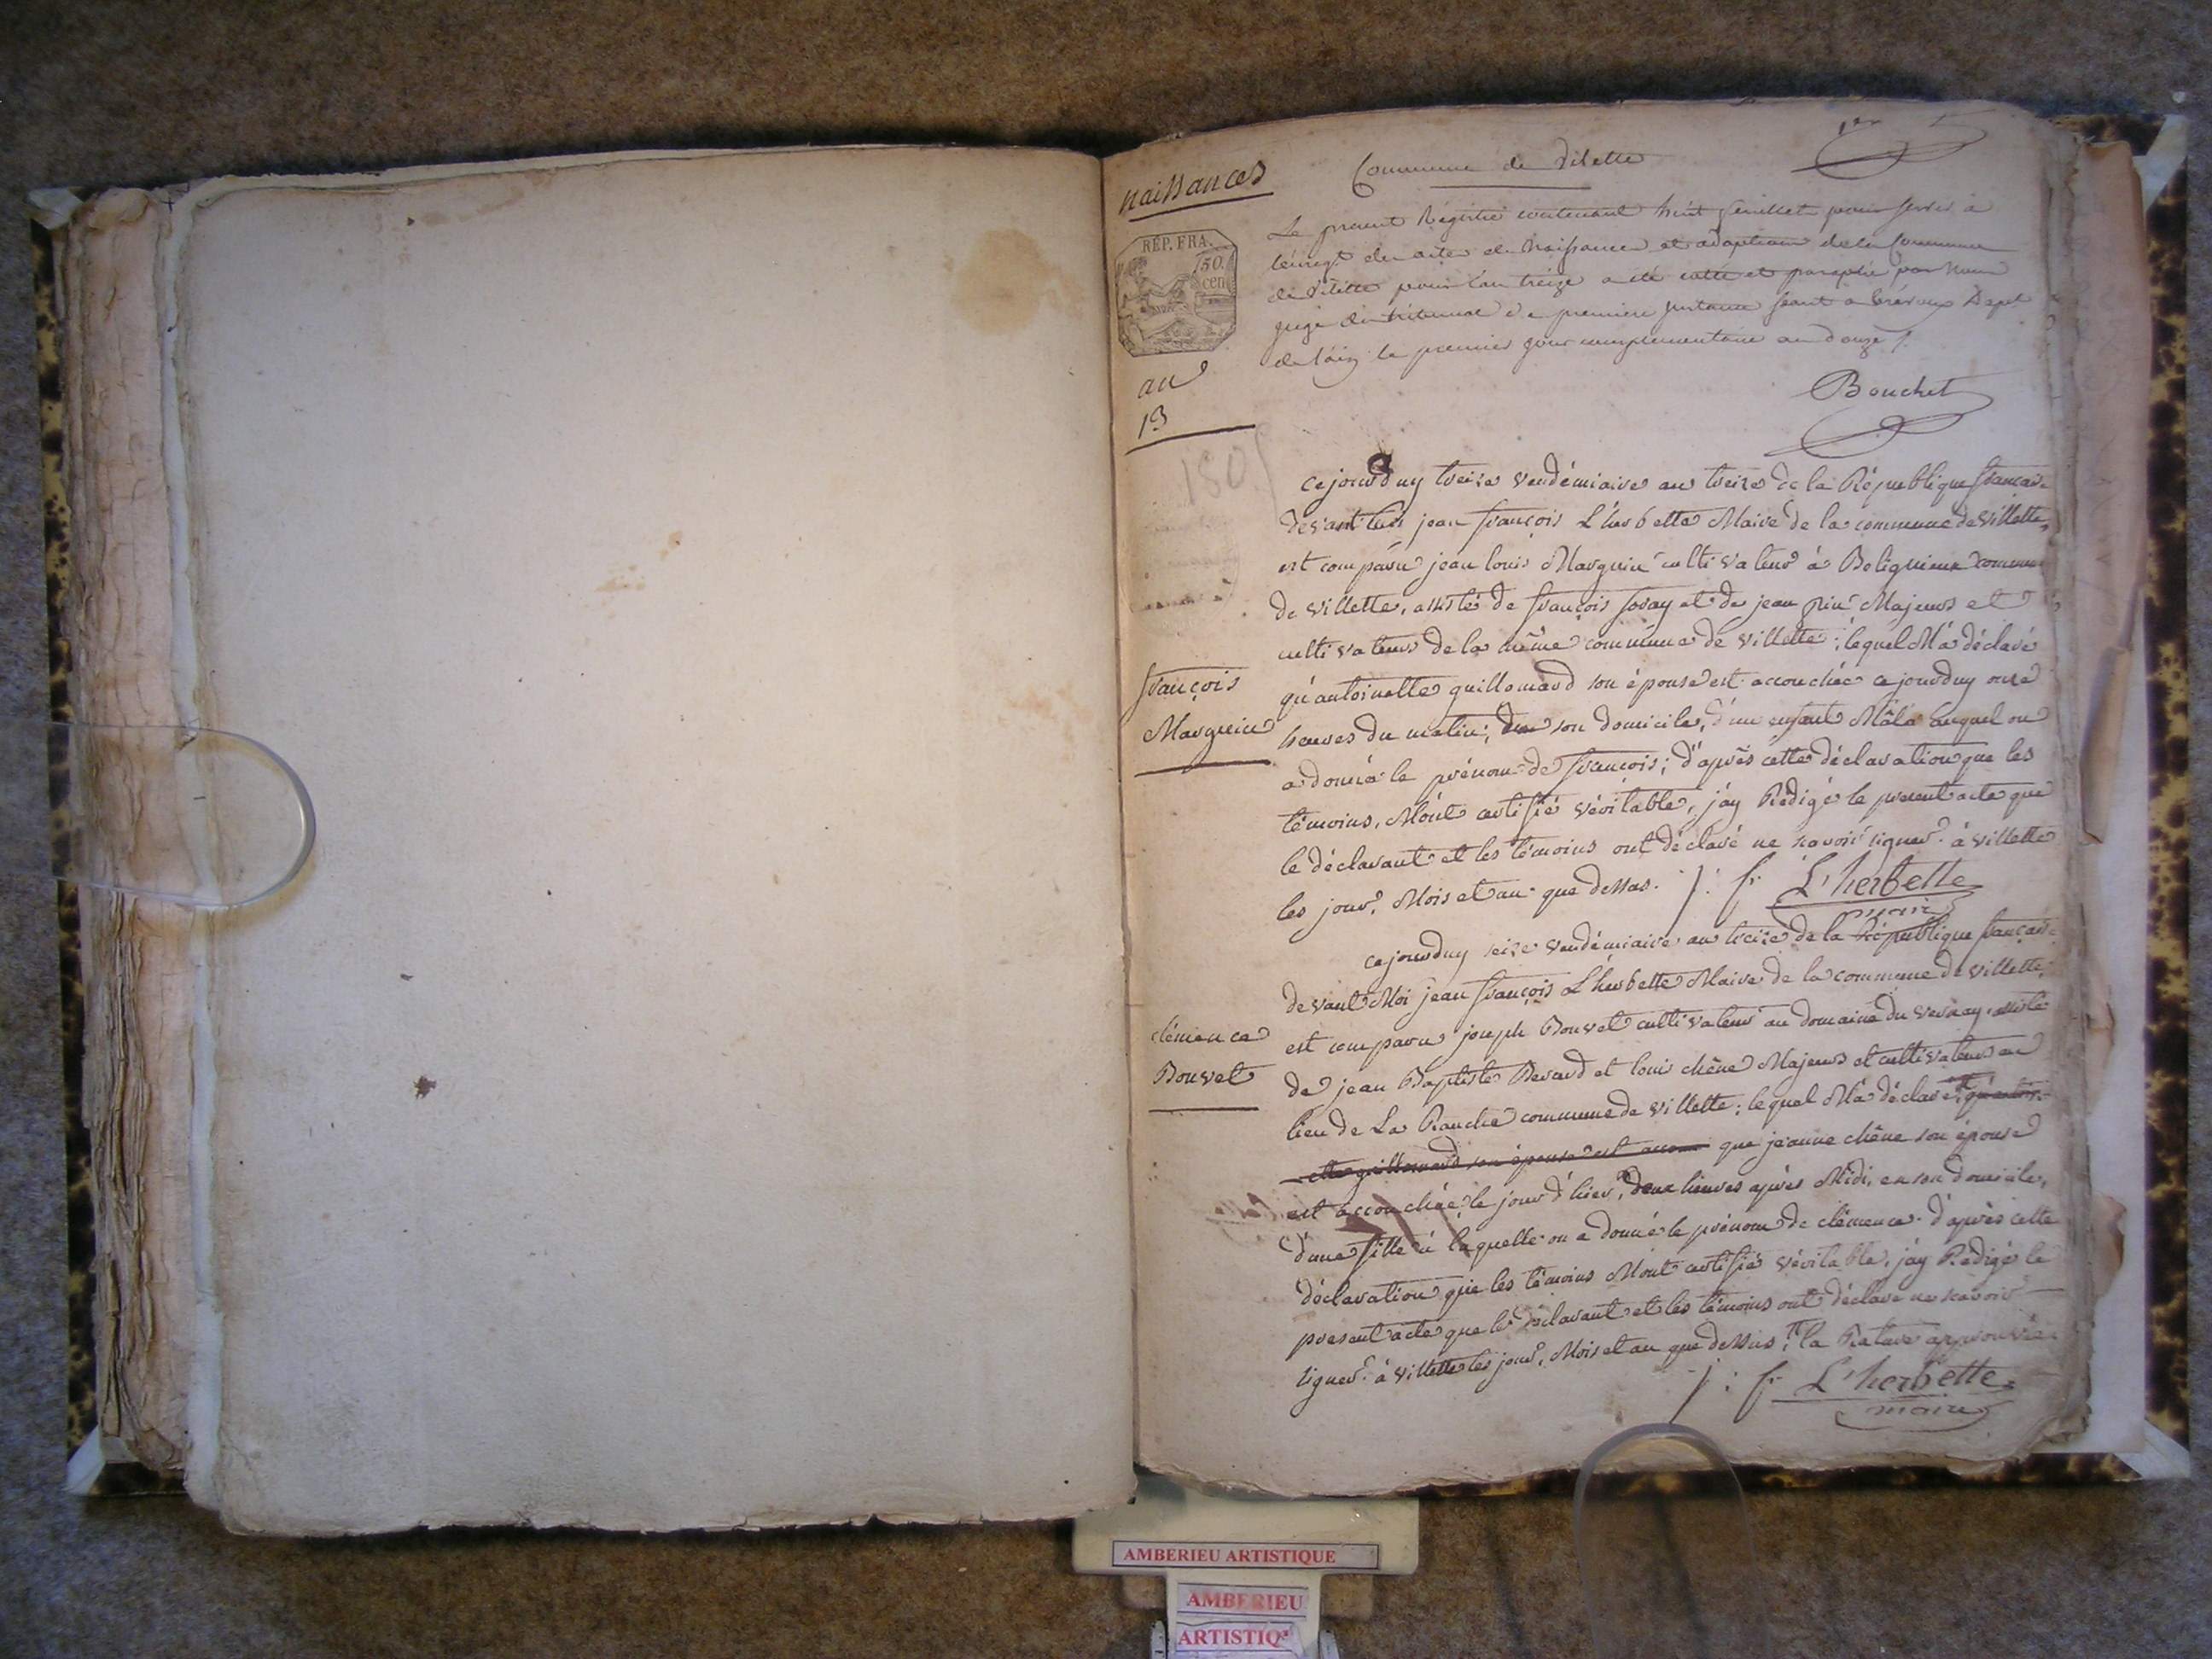 naissances
Commune de Vilette
1er
REP. FRA.
50
cen
Le present Registre contenant huit feuillets pour servir à
l'enregt des actes de Naissance et adoption de la Commune
de Vilette pour l'an treize a été cotté et paraphé par Nous
juge du tribunal de premiere jnstance séant a trévoux Dept
de l'ain le premier jour complementaire an douze /.
an
13
Bouchet
180
cejourduy treize vendémiaire an treize de la République française
devant Moi jean françois L'herbette Maire de la commune de villette,
est comparu jean louis Marguin cultivateur à Bolignieux commune
de villette, assisté de françois foray et de jean Majeurs et
cultivateurs de la même commune de villette; lequel M'a déclaré
françois
Marguin
qu'antoinette guillomard son épouse est accouchée cejourduy onze
heures du matin; son domicile, d'un enfant Mâle auquel on
a donné le prénom de françois; d'après cette déclaration que les
témoins, M'ont certifié véritable, j'ay Redigé le present acte que
le déclarant et les témoins ont déclaré ne scavoir signer. à villette
les jour, Mois et an que dessus. j: f. L'herbette
maire
cejourduy seize vendémiaire an treize de la République française
devant Moi jean françois L'herbette Maire de la commune de villette,
clémence
Bouvet
est comparu joseph Bouvet cultivateur au domaine du vernay, assisté
de jean Baptiste Berard et louis chêne Majeurs et cultivateurs au
lieu de La Ranche commune de villette; lequel M'a déclaré, qu'antoin-
ette guillomard son épouse est accou que jeanne chêne son épouse
est accouchée le jour d'hier, deux heures après Midi, en son domicile,
d'une fille à laquelle on a donné le prénom de clémence. d'après cette
déclaration que les témoins M'ont certifié véritable, j'ay Redigé le
present acte que le déclarant et les témoins ont déclaré ne scavoir
signer. à villette les jour, Mois et an que dessus, la Rature approuvée
j: f. L'herbette
maire
AMBERIEU ARTISTIQUE
AMBERIEU
ARTISTIQ